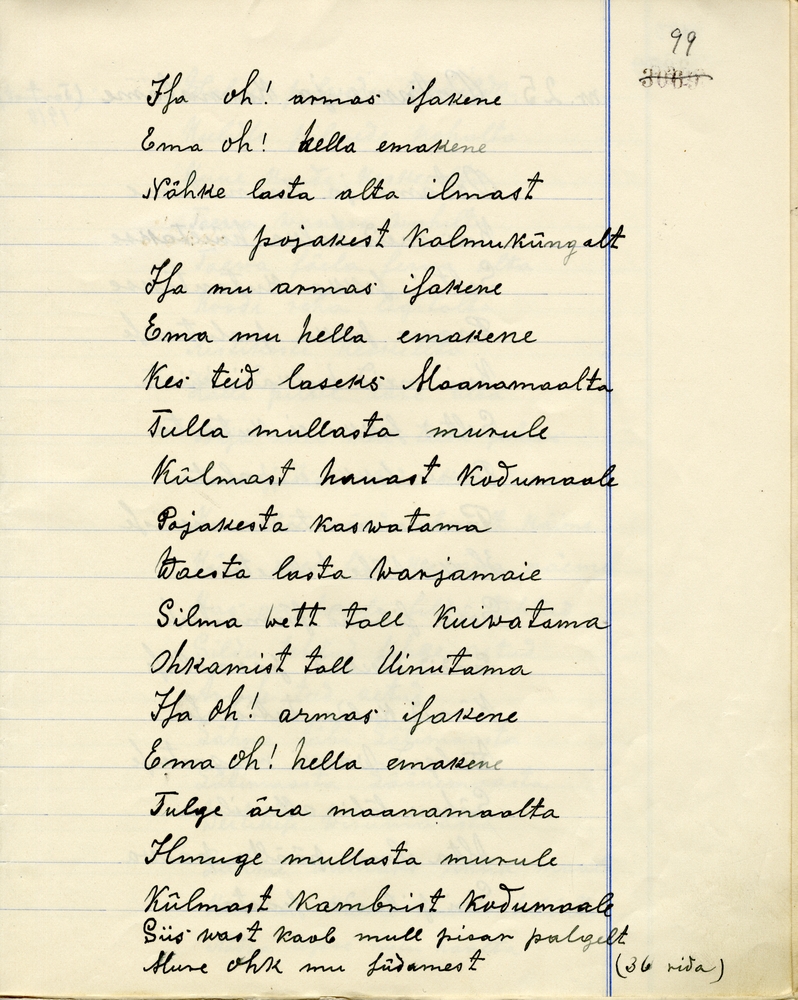 99
Isa oh! armas isakene
Ema oh! hella emakene
Nähke lasta alta ilmast
pojakest Kalmuküngalt
Isa mu armas isakene
Ema mu hella emakene
Kes teid laseks Maanamaalta
Tulla mullasta murule
Külmast hauast Kodumaale
Pojakesta kaswatama
Waesta lasta warjamaie
Silma wett tall Kuiwatama
Ohkamist tall Uinutama
Isa oh! armas isakene
Ema oh! hella emakene
Tulge ära maanamaalta
Ilmuge mullasta murule
Külmast Kambrist Kodumaale
Siis wast kaob mull pisar palgelt
Mure ohk mu südamest (36 rida)